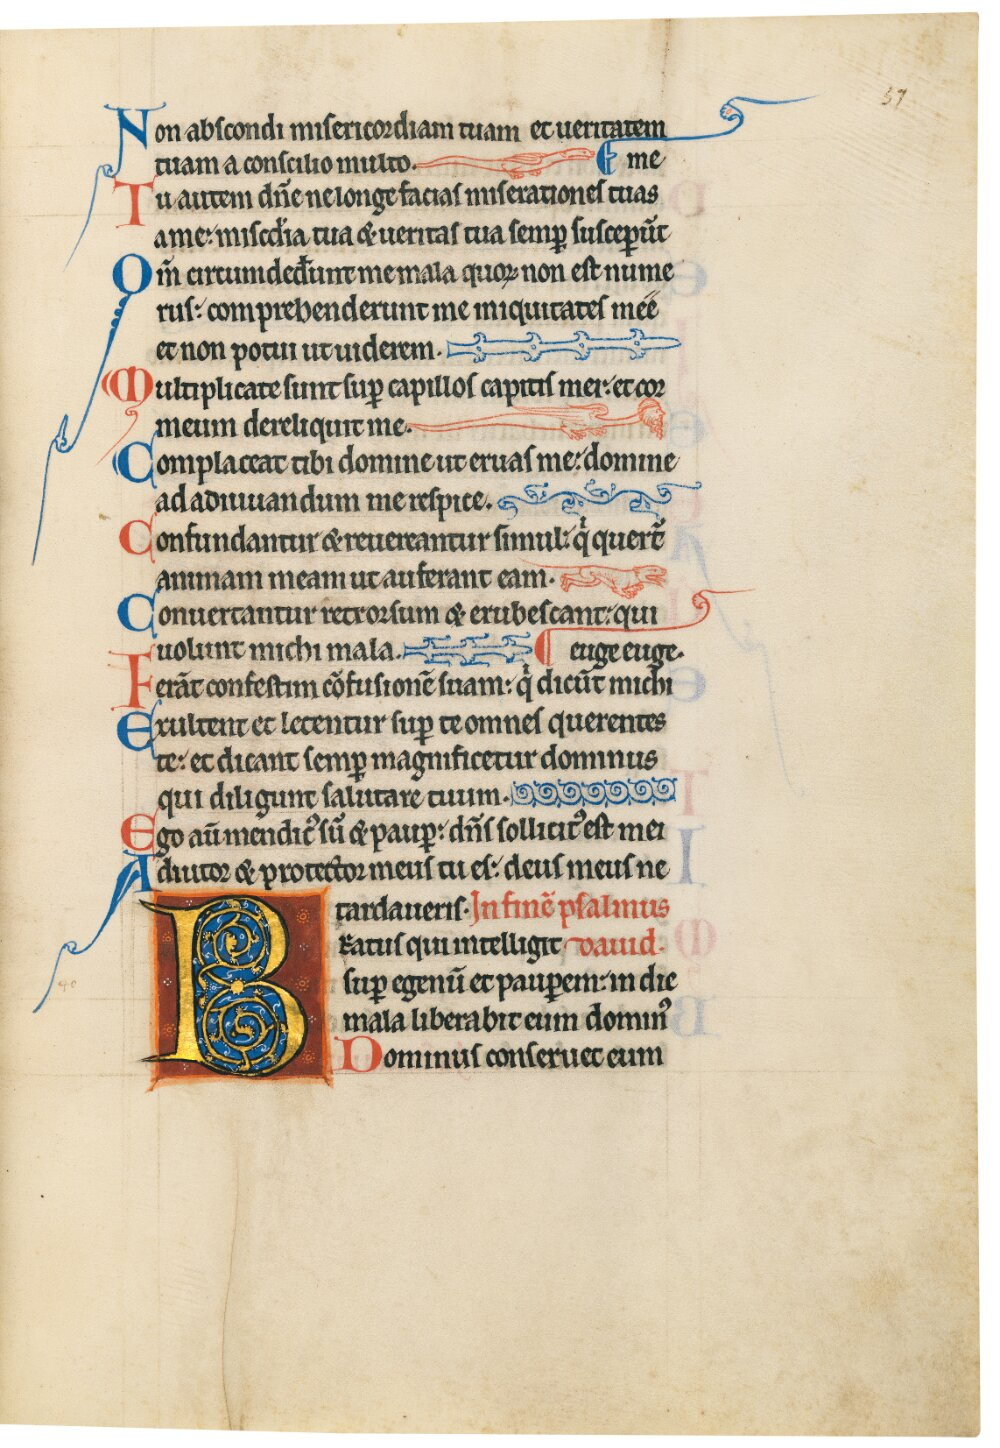 57
Non abscondi misericordiam tuam et ueritatem
tuam a conscilio multo. me
Tu autem dn̄e ne longe facias miserationes tuas
a me: misc̄dia tua & ueritas tua semp̱ susceper̄t
Qm̄ circumdeder̄unt me mala quoꝝ non est nume
rus: comprehenderunt me iniquitates mee
et non potui ut uiderem.
Multiplicate sunt sup̱ capillos capitis mei: et cor
meum dereliquit me.
Complaceat tibi domine ut eruas me: domine
ad adiuuandum me respice.
Confundantur & reuereantur simul: qͥ querūt
animam meam ut auferant eam.
Conuertantur retrorsum & erubescant: qui
uolunt michi mala. euge euge.
Ferāt confestim cōfusionē suam: qͥ dicūt michi
Exultent et letentur sup̱ te omnes querentes
te: et dicant semp̱ magnificetur dominus
qui diligunt salutare tuum.
Ego aū mendicꝰ sū & paup̱: dn̄s sollicitꝰ est mei
Adiutor & protector meus tu es: deus meus ne
tardaueris. In finē psalmus
Beatus qui intelligit dauid.
sup̱ egenū et paup̱em: in die
mala liberabit eum dominꝰ
40
Dominus conseruet eum